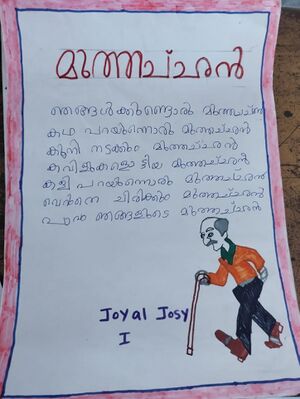 മുത്തച്ഛൻ
ഞങ്ങൾക്കുണ്ടൊരു മുത്തച്ഛൻ
കഥ പറയുന്നൊരു മുത്തച്ഛൻ
കൂനി നടക്കും മുത്തച്ഛൻ
കവിളുകളൊട്ടിയ മുത്തച്ഛൻ
കളി പറയുന്നൊരു മുത്തച്ഛൻ
ചിരിക്കും മുത്തച്ഛൻ
ഞങ്ങളുടെ മുത്തച്ഛൻ
Joyal Josy
I